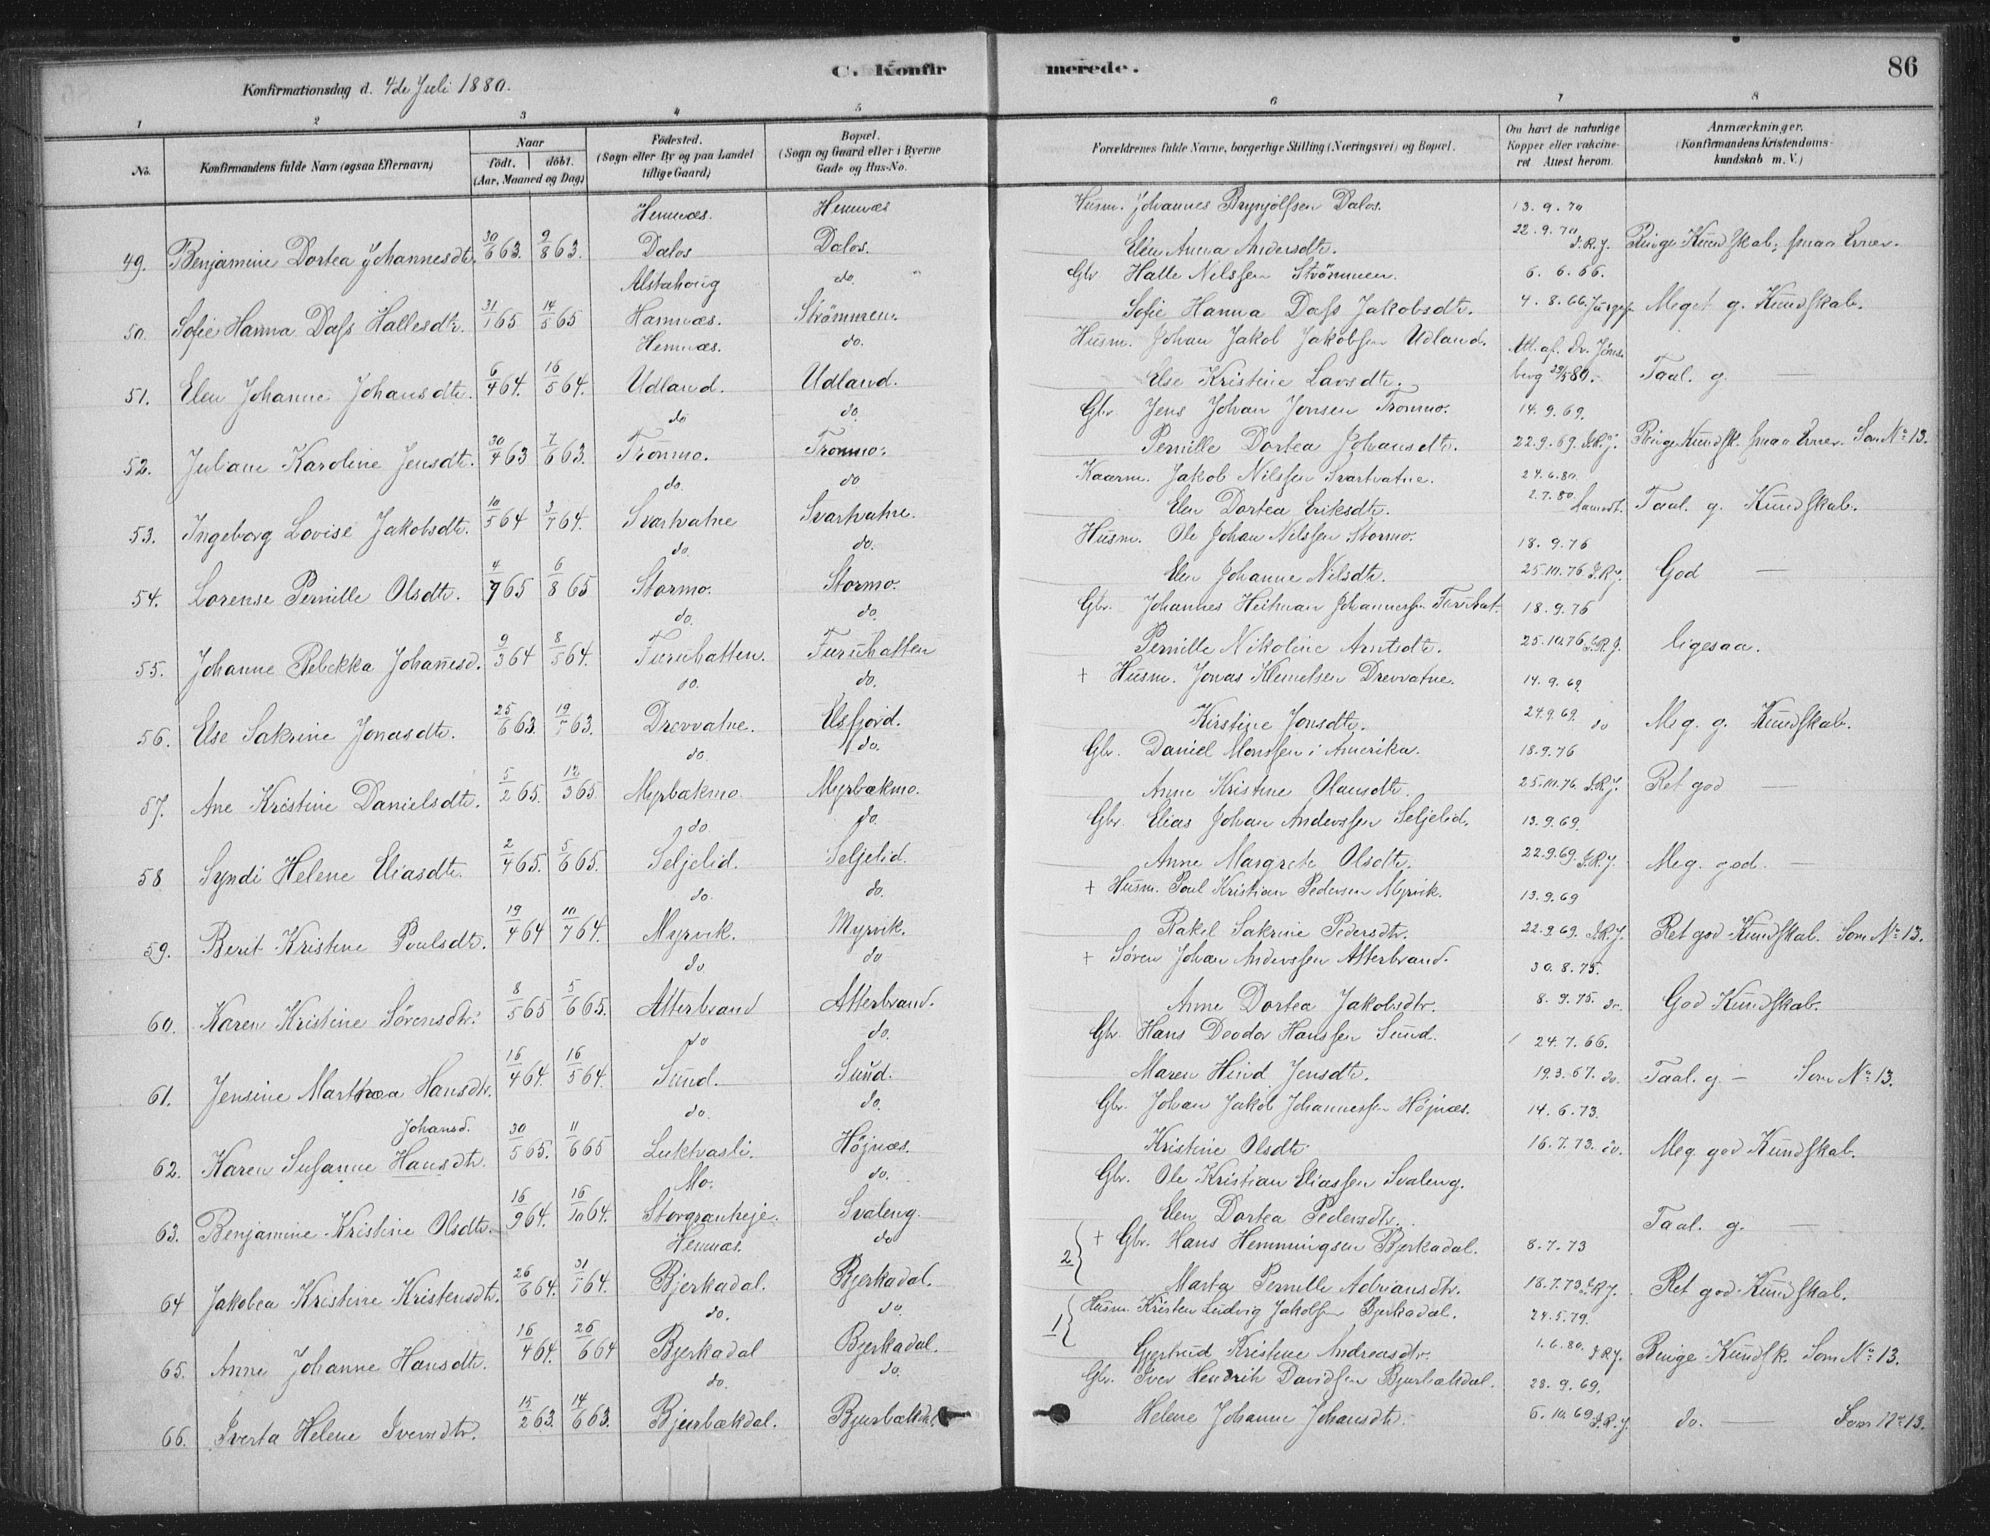 C. Konfir merede. 86
Konfirmationsdag d. 4de Juli 1880.
1 2 3 4 5 6 7 8
No. Konfirmandens fulde Navn (ogsaa Efternavn) Naar født. døbt. (Aar, Maaned og Dag) Fødested. (Sogn eller By og paa Landet tillige Gaard) Bopæl. (Sogn og Gaard eller i Byerne Gade og Hus-No. Forældrenes fulde Navne, borgerlige Stilling (Næringsvei) og Bopæl. Om havt de naturlige Kopper eller vakcineret. Attest herom. Anmærkninger. (Konfirmandens Kristendomskundskab m. V.)
Hemnæs. Hemnæs Husm. Johannes Brynjolfsen Dalos. 13.9.70
49. Benjamine Dortea Johannesdtr. 30/6 63. 9/8 63. Dalos Dalos. Elen Anna Andersdtr. 22.9.70 J.R.J. Ringe Kundskab, smaa Evner.
Alstahoug do Gbr Halte Nilssen Strømmen. 6.6.66.
50. Sofie Hanna Dass Hallesdtr. 31/1 65 14/5 65 Hamnæs. Strømmen. Sofie Hanna Dass Jakobsdtr. 4.8.66. Meget g. Kundskab.
Hemnæs. do. Husm. Johan Jakob Jakobsen Udland.
51. Elen Johanne Johansdtr. 6/4 64. 16/5 64. Udland. Udland. Else Kristine Larsdtr. Att. af Dr. Jønsberg 29/5 80. Taal. g. —
do do. Gbr. Jens Johan Jensen Tronmo. 14.9.69.
52. Juliane Karoline Jensdtr. 30/4 63 7/6 63. Tronmo. Tronmo. Pernille Dortea Johansdtr. 22.9.69. J.R.J. Ringe Kundsk. smaa Evner. Som No 13.
do. do Kaarm. Jakob Nilssen Svartvatne. 24.6.80.
53. Ingeborg Lovise Jakobsdtr. 10/5 64 3/7 64. Svartvatne Svartvatne. Elen Dortea Eriksdtr. 2.7.80 Taal. g. Kundskab.
do. do. Husm. Ole Johan Nilssen Stormo. 18.9.76
54. Lorense Pernille Olsdtr. 4/7 65 6/8 65 Stormo. Stormo. Elen Johanne Nilsdtr. 25.10.76 J.R.J. God —
do. do. Gbr. Johannes Heitman Johannessen Furuhat. 18.9.76
55. Johanne Rebekka Johannesd. 9/3 64 8/5 64. Furuhatten. Furuhatten Pernille Nikoline Arntsdtr. 25.10.76 J.R.J. ligesaa.
do. do. + Husm. Jonas Klemetsen Drevvatne. 14.9.69
56. Else Sakrine Jonasdtr. 25/6 63. 19/7 63. Drevvatne. Elsfjord. Kirstine Jonsdtr. 24.9.69. do Meg. g. Kundskab.
do do. Gbr. Daniel Monssen i Amerika. 18.9.76
57. Ane Kristine Danielsdtr. 5/2 65. 12/3 65. Myrbækmo. Myrbækmo. Anne Kristine Olausdtr. 25.10.76. J.R.J. Ret god —
do do. Gbr. Elias Johan Anderssen Seljelid. 13.9.69.
58 Syndi Helene Eliasdtr. 2/4 65. 5/6 65. Seljelid. Seljelid. Anne Margrete Olsdtr. 22.9.69 J.R.J. Meg. god. —
do. do. + Husm. Poul Kristian Pedersen Myrvik. 13.9.69
59. Berit Kristine Poulsdtr. 19/4 64 10/7 64. Myrvik. Myrvik. Rakel Sakrine Pedersdtr. 22.9.69. J.R.J. Ret god Kundskab. Som No 13.
do do + Søren Johan Anderssen Atterbrand. 30.8.75.
60. Karen Kristine Sørensdtr. 8/5 65 5/6 65. Atterbrand Atterbrand. Anne Dortea Jakobsdtr. 8.9.75. do. God Kundskab.
do do. Gbr. Hans Deodor Hanssen Sund. 24.7.66.
61. Jensine Marthea Hansdtr. 16/4 64. 16/5 64. Sund. Sund. Maren Hind Jensdtr. 19.3.67. do. Taal. g. — Som No 13.
Johansd. do. do. Gbr. Johan Jakob Johannessen Højnæs. 14.6.73.
62. Karen Susanne Hansdtr. 30/5 65. 11/6 65 Luktvasli. Højnæs. Kristine Olsdtr. 16.7.73. do. Meg god Kundskab.
Mo. do. Gbr. Ole Kristian Eliassen Svaleng.
63. Benjamine Kristine Olsdtr. 16/9 64. 16/10 64. Storgranheje. Svaleng. Elen Dortea Pedersdtr. Taal. g. —
Hemnæs. do 2 + Gbr. Hans Hemmingsen Bjerkadal. 8.7.73
64 Jakobea Kristine Kristensdtr. 26/6 64. 31/7 64. Bjerkadal. Bjerkadal. Marta Pernille Adriansdtr. 18.7.73 J.R.J. Ret god Kundskab.
do. do. 1 Husm. Kristen Ludvig Jakobsen Bjerkadal. 24.5.79.
65. Anne Johanne Hansdtr. 16/4 64. 26/6 64 Bjerkadal Bjerkadal. Gjertrud Kristine Andreasdtr. 1.6.80. J.R.J. Ringe Kundsk. Som No 13.
do. do. Gbr. Iver Hendrik Davidsen Bjurbækdal. 28.9.69.
66. Iverta Helene Iversdtr. 15/2 63. 14/6 63. Bjurbækdal. Bjurbækdal Helene Johanne Johansdtr. 6.10.69 J.R.J. do. — Som No 13.